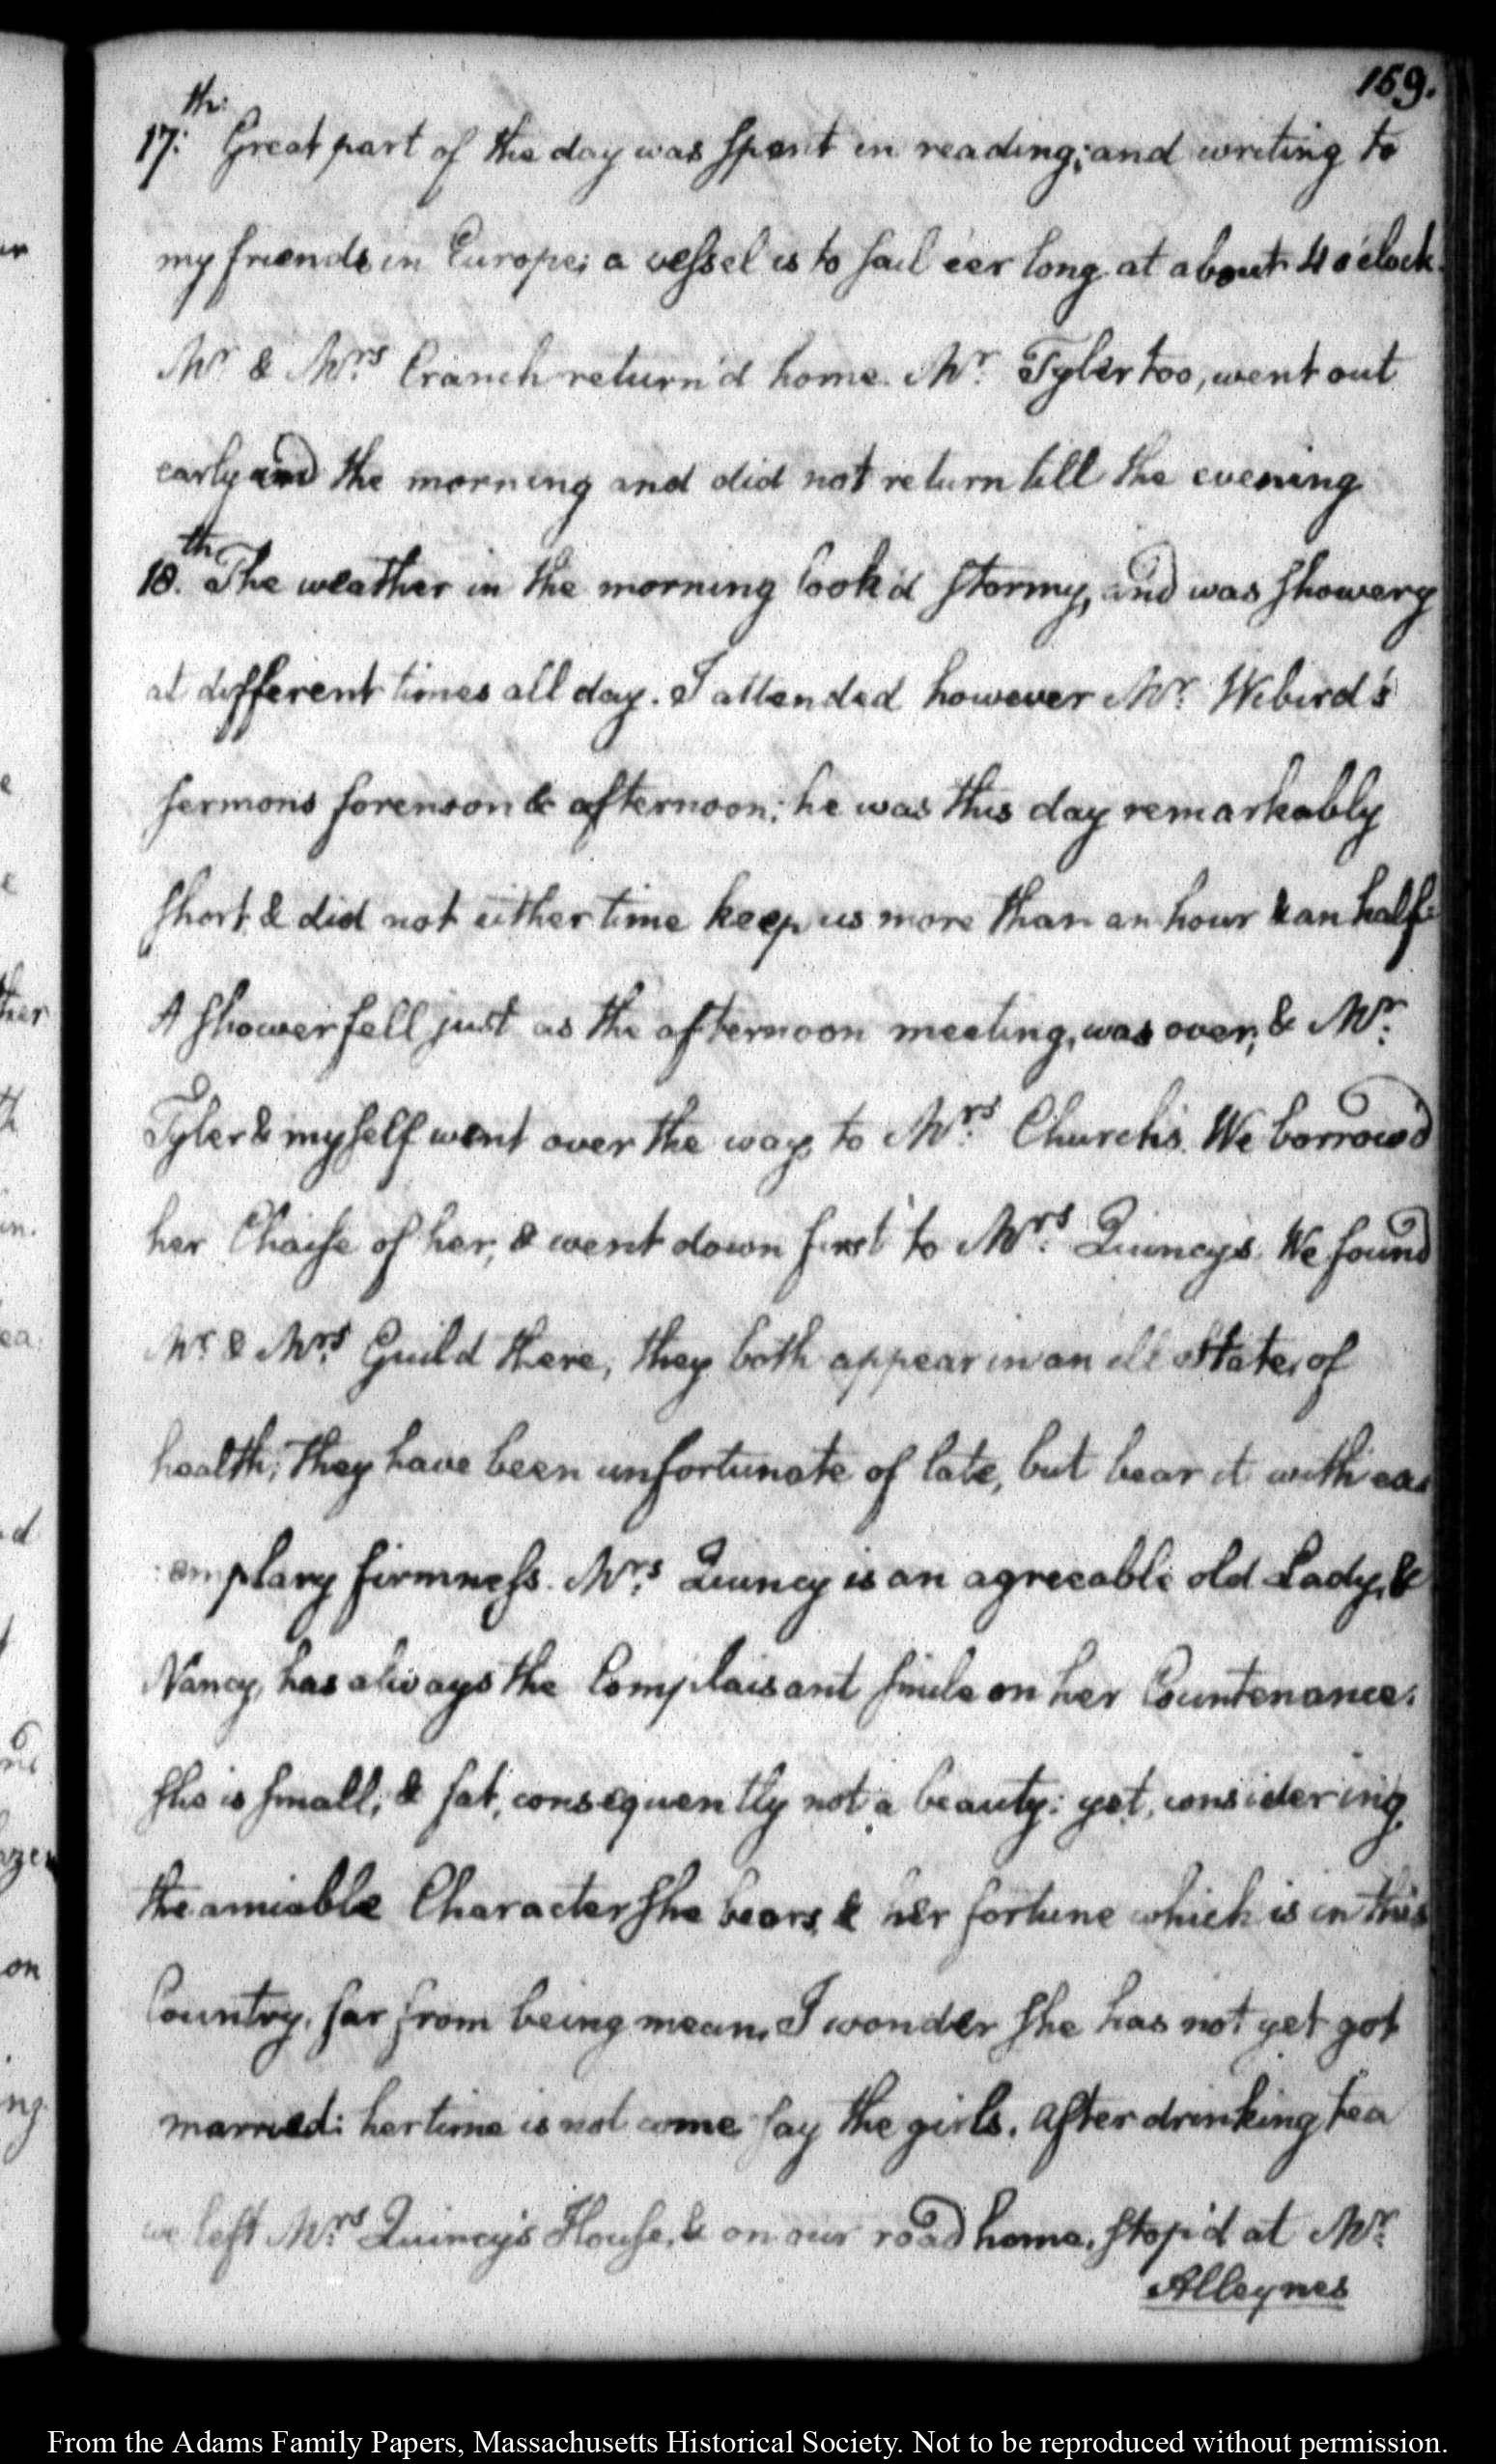 159.
17.th: Great part of the day was spent in reading; and writing to
my friends in Europe; a vessel is to sail e'er long at about 4 o'clock.
Mr & Mrs Cranch return'd home. Mr. Tyler too, went out
early and the morning and did not return till the evening
18.th The weather in the morning look'd stormy, and was showery
at different times all day. I attended however Mr. Wibird's
sermons forenoon & afternoon; he was this day remarkably
short & did not either time keep us more than an hour & an half.
A shower fell just as the afternoon meeting, was over; & Mr.
Tyler & myself went over the way, to Mrs. Church's. We borrow'd
her Chaise of her, & went down first to Mrs. Quincy's. We found
Mr. & Mrs. Guild there, they both appear in an ill State, of
health; They have been unfortunate of late, but bear it with ex
:emplary firmness. Mrs. Quincy is an agreeable old Lady, &
Nancy, has always the Complaisant smile on her Countenance.
she is small; & fat, consequently not a beauty: yet, considering,
the amiable Character she bears, & her fortune which is in this
Country, far from being mean, I wonder she has not yet got
married: her time is not come say the girls. After drinking tea
we left Mrs. Quincy's House, & on our road home, stop'd at Mr.
Alleynes
From the Adams Family Papers, Massachusetts Historical Society. Not to be reproduced without permission.